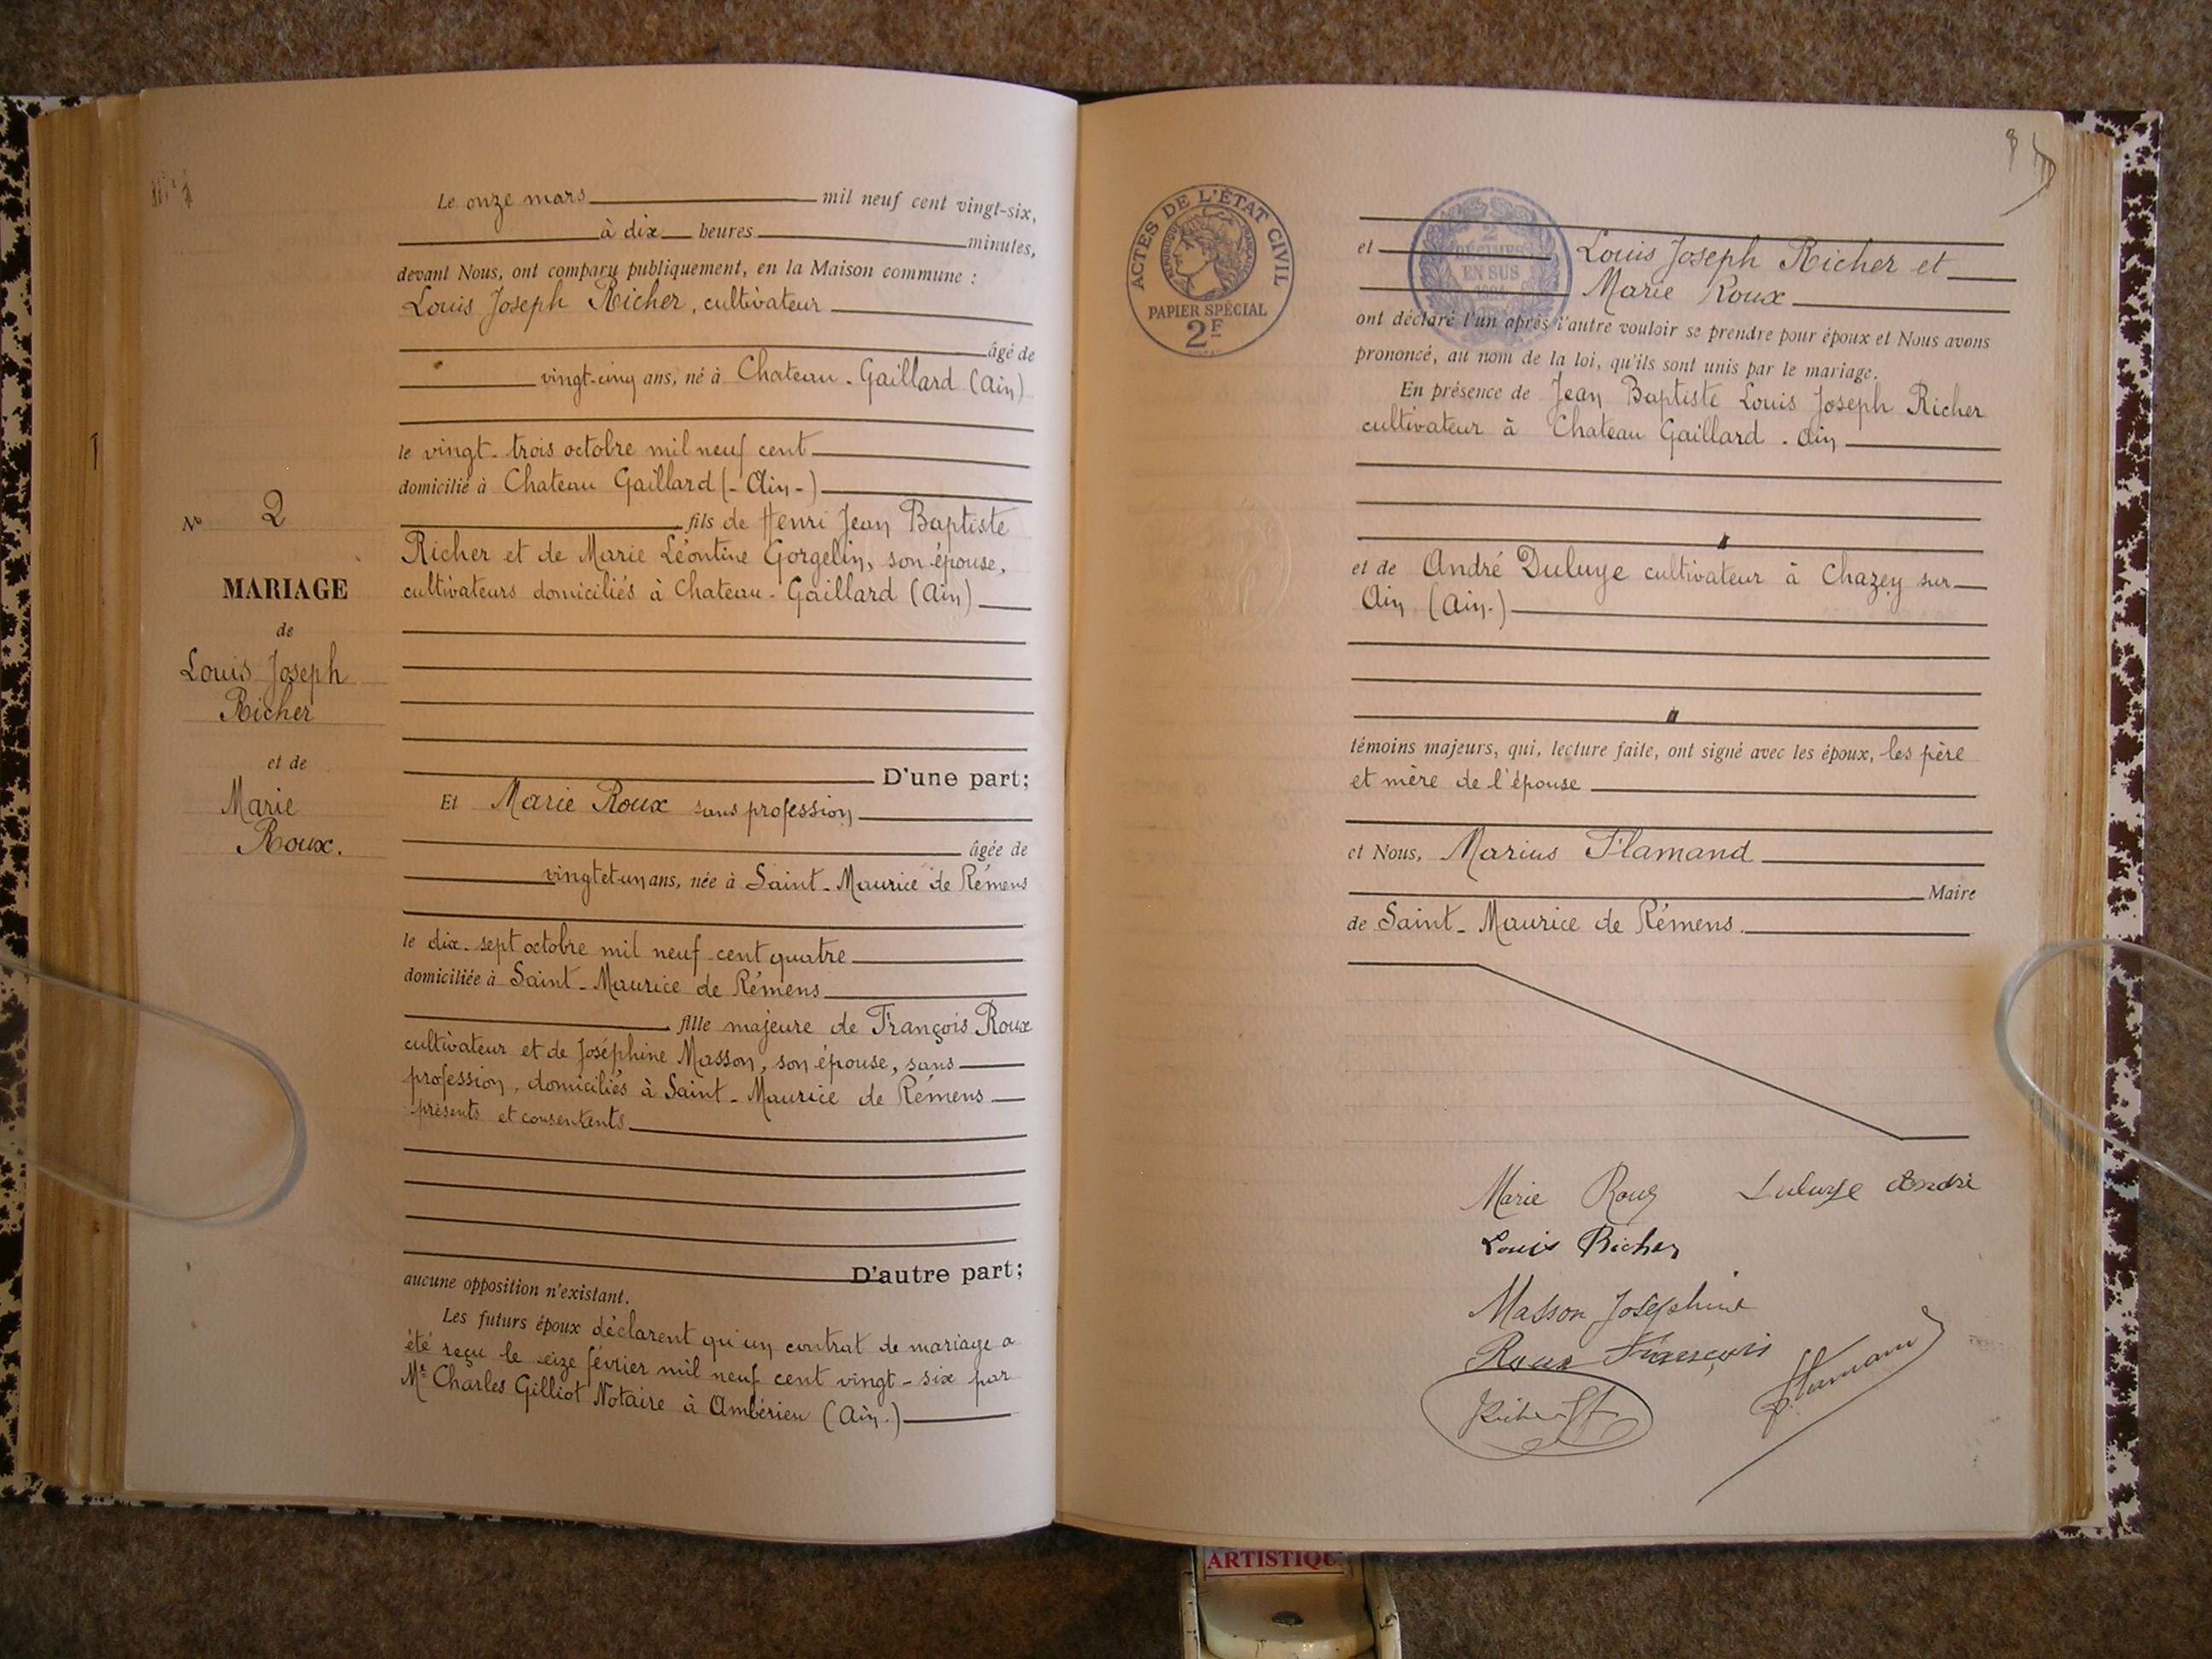 N° 2
MARIAGE
de
Louis Joseph
Richer
et de
Marie
Roux.
Le onze mars mil neuf cent vingt-six,
à dix heures minutes,
devant Nous, ont comparu publiquement, en la Maison commune :
Louis Joseph Richer, cultivateur
âgé de
vingt-cinq ans, né à Chateau-Gaillard (Ain)
le vingt-trois octobre mil neuf cent
domicilié à Chateau Gaillard (-Ain-)
fils de Henri Jean Baptiste
Richer et de Marie Léontine Gorgelin, son épouse,
cultivateurs domiciliés à Chateau-Gaillard (Ain)
D'une part;
Et Marie Roux sans profession
âgée de
vingt et un ans, née à Saint-Maurice de Rémens
le dix-sept octobre mil neuf cent quatre
domiciliée à Saint-Maurice de Rémens
fille majeure de François Roux
cultivateur et de Joséphine Masson, son épouse, sans
profession, domiciliés à Saint-Maurice de Rémens
présents et consentants
D'autre part;
aucune opposition n'existant.
Les futurs époux déclarent qu'un contrat de mariage a
été reçu le février mil neuf cent vingt-six par
Me Charles Gilliot Notaire à Ambérieu (Ain.)
ACTES DE L'ÉTAT CIVIL
PAPIER SPÉCIAL
2F
2
DÉCIMES
EN SUS
et Louis Joseph Richer et
Marie Roux
ont déclaré l'un après l'autre vouloir se prendre pour époux et Nous avons
prononcé, au nom de la loi, qu'ils sont unis par le mariage.
En présence de Jean Baptiste Louis Joseph Richer
cultivateur à Chateau Gaillard. Ain
et de André Duluye cultivateur à Chazey sur
Ain (Ain.)
témoins majeurs, qui, lecture faite, ont signé avec les époux, les père
et mère de l'épouse
et Nous, Marius Flamand
Maire
de Saint-Maurice de Rémens.
Marie Roux Duluye André
Louis Richer
Masson Joséphine
Roux François
Flamand
ARTISTIQU